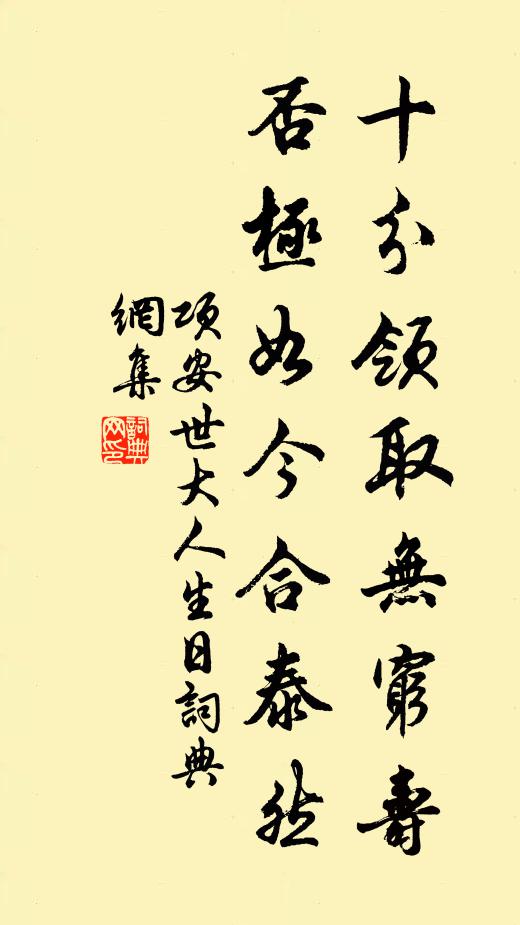 十分領取無窮壽
否極如今合泰然
項安世大人生日詞典
網集
詞典
网印